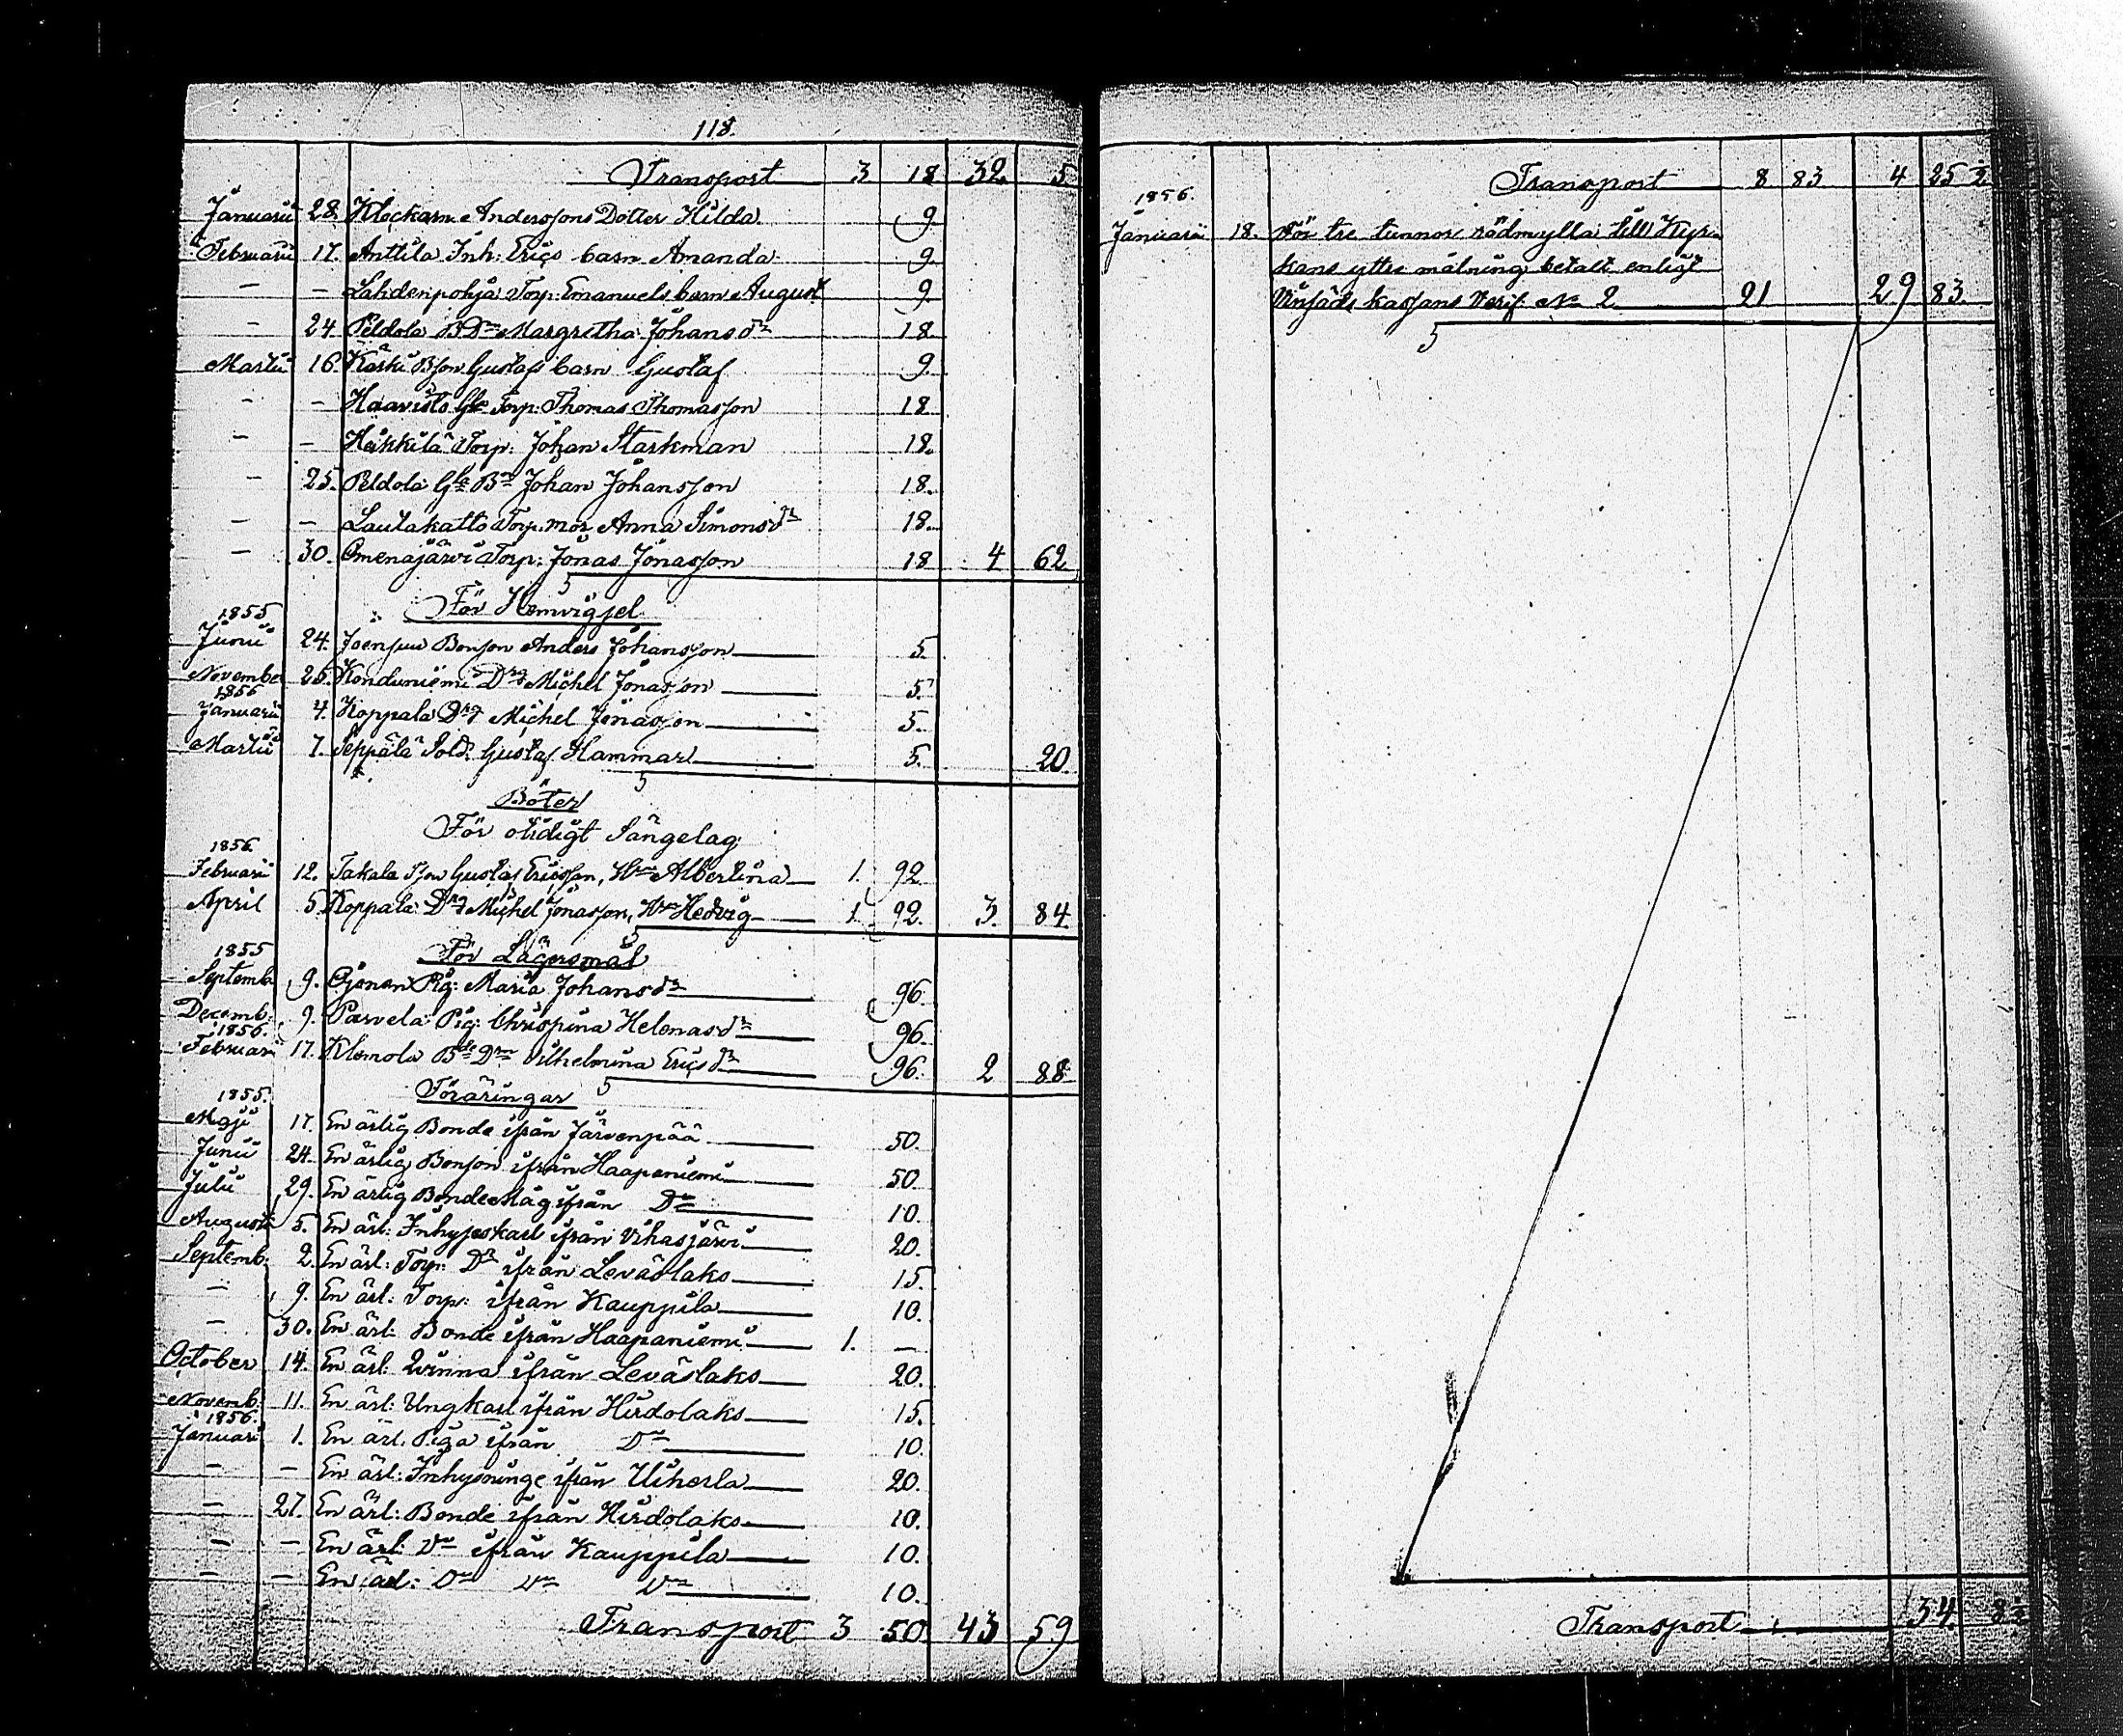 118.
Transport 3 18 32. 5
Januarii 28. Klockarn Anderssons Dotter Hilda 9.
Februarii 17. Anttila Inh: Erics barn Amanda 9.
— — Lahdenpohja Torp: Emanuels barn August 9.
— 24. Peldola Margretha Johansdr 18.
Martii 16. Kärki Bson Gustafs barn Gustaf 9.
— — Haavisto Gle Torp: Thomas Thomasson 18
— — Heikkilä Torp: Johan Starkman 18.
— 25. Peldola Gle Bn Johan Johansson 18.
— — Lautakatto Torp: mor Anna Simonsdr 18.
— 30. Omenajärvi Torp: Jonas Jonasson 18 4 62
För Hemvigsel
1855
Junii 24. Joensuu Bonson Anders Johansson 5.
November 25. Konduniemi Drg Michel Jonasson 5.
1856
Januarii 4. Koppala Drg Michel Jonasson 5.
Martii 7. Seppälä Sold: Gustaf Hammar 5. 20
Böter
För otidigt Sängelag
1856.
Februarii 12. Takala Gustaf Ericsson, Albertina 1. 92
April 5 Koppala Drg Michel Jonasson, Hedvig 1. 92. 3. 84.
För Lägersmål
1855
Septemb. 9. Pig: Maria Johansdr 96.
Decemb. 9. Parvela Pig: Chrispina Helenasdr 96.
1856.
Februari 17. Klemola Vilhelmina Ericsdr 96. 2 88
Föräringar
1855.
Maji 17. En ärlig Bonde ifrån Järvenpää 50.
Junii 24. En ärlig Bonson ifrån Haapaniemi 50.
Julii 29. En ärlig Bonde Måg ifrån Do 10.
Augusti 5. En ärl: Inhyseskarl ifrån Vihasjärvi 20.
Septemb. 2. En ärl: Torp: Dr ifrån Leväslaks 15.
— 9. En ärl: Torp: ifrån Kauppila 10.
— 30. En ärl: Bonde ifrån Haapaniemi 1. —
October 14. En ärl: Qvinna ifrån Leväslaks 20.
Novemb. 11. En ärl: Ungkarl ifrån Hirdolaks 15.
1856.
Januari 1. En ärl. Piga ifrån Do 10.
— — En ärl: Inhysninge ifrån Uiherla 20.
— 27. En ärl: Bonde ifrån Hirdolaks 10.
— — En ärl: Do ifrån Kauppila 10.
— — En ärl: Do Do Do 10.
Transport 3 50 43 59
Transport 8 83 4 25 2
1856.
Januarii 18. För tre tunnor rödmylla till Kyr-
kans yttre målning betalt enligt
kassans Verif. No 2 21 29 83.
Transport 34.